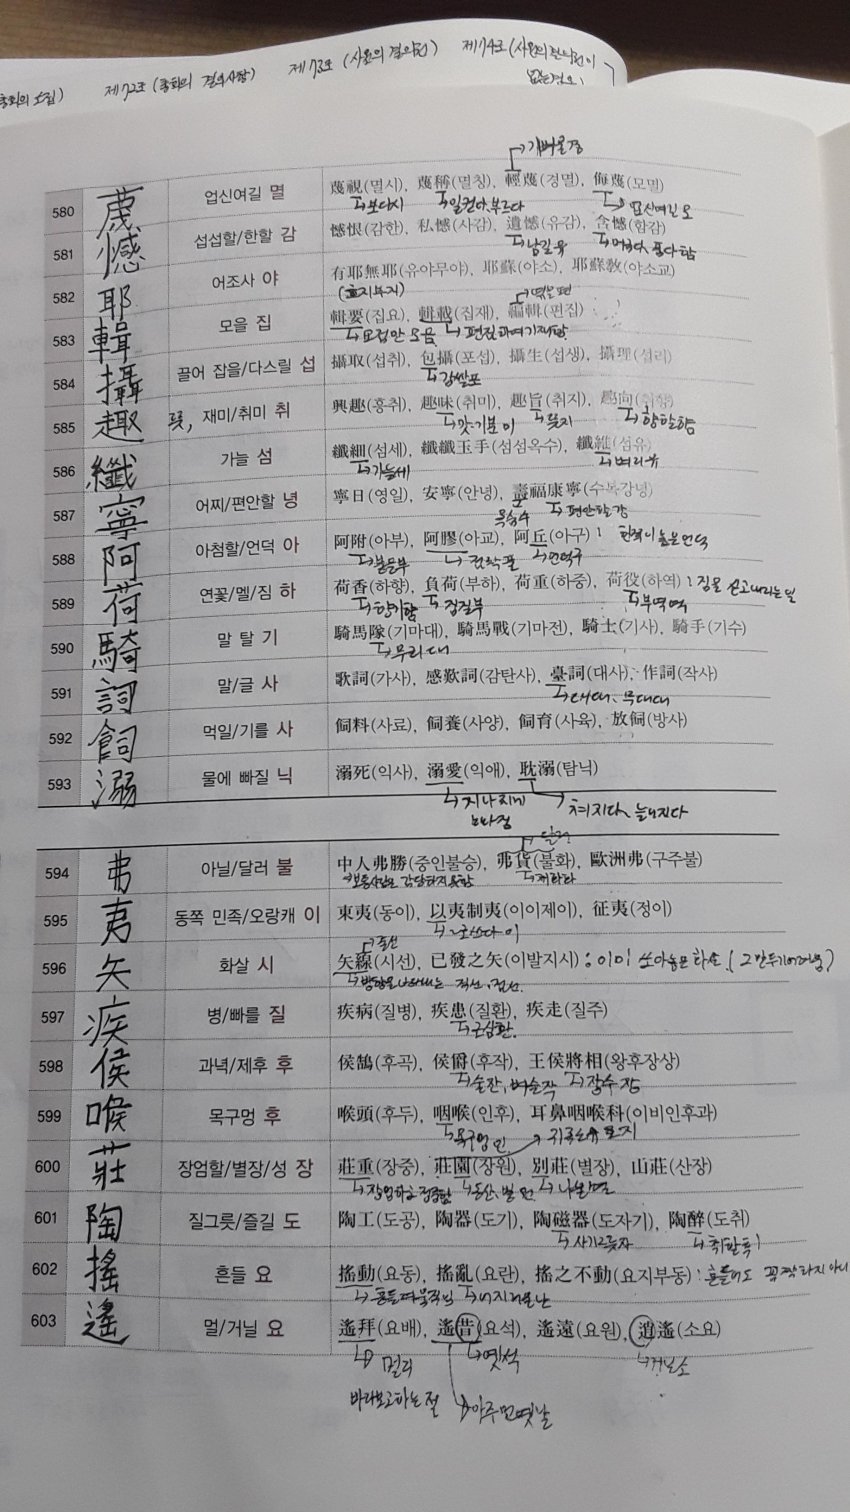 제72조 (총회의 결의사항) 제73조 (사원의 결의권) 제74조 (사원이 결의권이
없는 경우)
가벼울 경
580 蔑 업신여길 멸 蔑視(멸시), 蔑稱(멸칭), 輕蔑(경멸), 侮蔑(모멸)
보다 시 일컫다, 부르다 업신여길 모
581 憾 섭섭할/한할 감 憾恨(감한), 私憾(사감), 遺憾(유감), 含憾(함감)
남길 유 머금다, 품다 함
582 耶 어조사 야 有耶無耶(유야무야), 耶蘇(야소), 耶蘇敎(야소교)
(흐지부지) 엮을 편
583 輯 모을 집 輯要(집요), 輯載(집재), 編輯(편집)
요점만 모음 편집하여 기재함
584 攝 끌어 잡을/다스릴 섭 攝取(섭취), 包攝(포섭), 攝生(섭생), 攝理(섭리)
감쌀 포
585 趣 뜻, 재미/취미 취 興趣(흥취), 趣味(취미), 趣旨(취지), 趣向(취향)
맛·기분 미 뜻 지 향할 향
586 纖 가늘 섬 纖細(섬세), 纖纖玉手(섬섬옥수), 纖維(섬유)
가늘 세 벼리 유
587 寧 어찌/편안할 녕 寧日(영일), 安寧(안녕), 壽福康寧(수복강녕)
목숨 수 편안할 강
588 阿 아첨할/언덕 아 阿附(아부), 阿膠(아교), 阿丘(아구) : 한쪽이 높은 언덕
붙을 부 언덕 구
589 荷 연꽃/멜/짐 하 荷香(하향), 負荷(부하), 荷重(하중), 荷役(하역) : 짐을 싣고 내리는 일
향기 향 짐질 부 부역 역
590 騎 말 탈 기 騎馬隊(기마대), 騎馬戰(기마전), 騎士(기사), 騎手(기수)
무리 대
591 詞 말/글 사 歌詞(가사), 感歎詞(감탄사), 臺詞(대사), 作詞(작사)
대 대, 무대 대
592 飼 먹일/기를 사 飼料(사료), 飼養(사양), 飼育(사육), 放飼(방사)
593 溺 물에 빠질 닉 溺死(익사), 溺愛(익애), 耽溺(탐닉)
지나치게 처지다, 늘어지다
달러
594 弗 아닐/달러 불 中人弗勝(중인불승), 弗貨(불화), 歐洲弗(구주불)
보통사람은 감당하지 못함 재화 화
595 夷 동쪽 민족/오랑캐 이 東夷(동이), 以夷制夷(이이제이), 征夷(정이)
줄 선
596 矢 화살 시 矢線(시선), 已發之矢(이발지시) : 이미 쏘아놓은 화살 (그만두기 어려움)
방향을 나타내는 직선, 곡선
597 疾 병/빠를 질 疾病(질병), 疾患(질환), 疾走(질주)
근심 환
598 侯 과녁/제후 후 侯鵠(후곡), 侯爵(후작), 王侯將相(왕후장상)
술잔, 벼슬 작 장수 장
599 喉 목구멍 후 喉頭(후두), 咽喉(인후), 耳鼻咽喉科(이비인후과)
목구멍 인
600 莊 장엄할/별장/성 장 莊重(장중), 莊園(장원), 別莊(별장), 山莊(산장)
장엄하고 정중함 동산, 밭 원 나눌 별
601 陶 질그릇/즐길 도 陶工(도공), 陶器(도기), 陶磁器(도자기), 陶醉(도취)
사기그릇 자 취할 취
602 搖 흔들 요 搖動(요동), 搖亂(요란), 搖之不動(요지부동) : 흔들어도 꼼짝하지 아니
흔들려 움직임 어지러울 란
603 遙 멀/거닐 요 遙拜(요배), 遙昔(요석), 遙遠(요원), 逍遙(소요)
멀리 옛 석 거닐 소
바라보고 하는 절 아주 먼 옛날